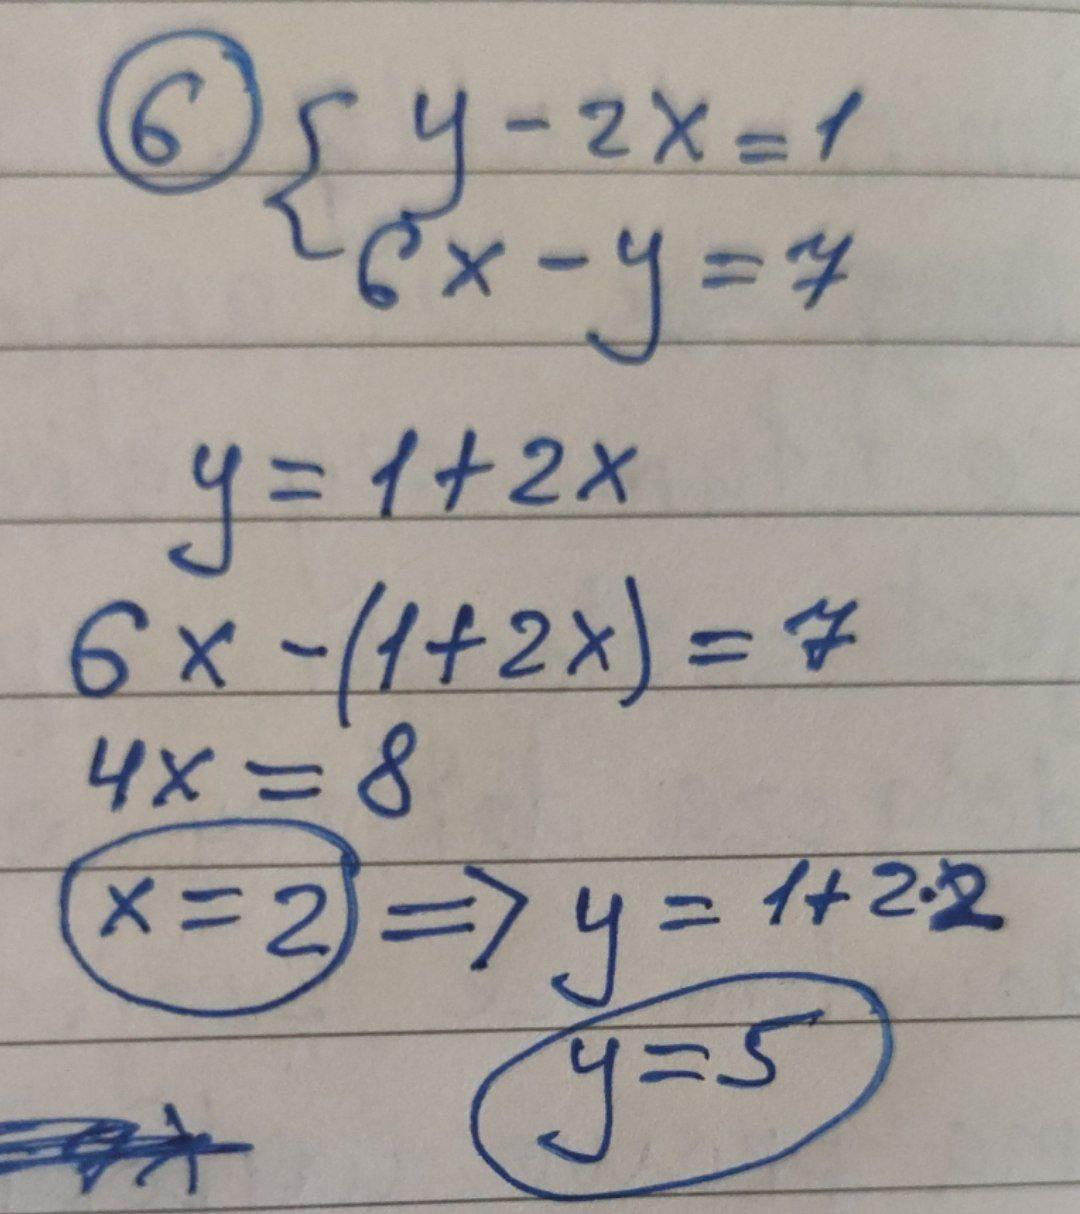 6 { y - 2x = 1
6x - y = 7
y = 1 + 2x
6x - (1 + 2x) = 7
4x = 8
x = 2 => y = 1 + 2·2
y = 5